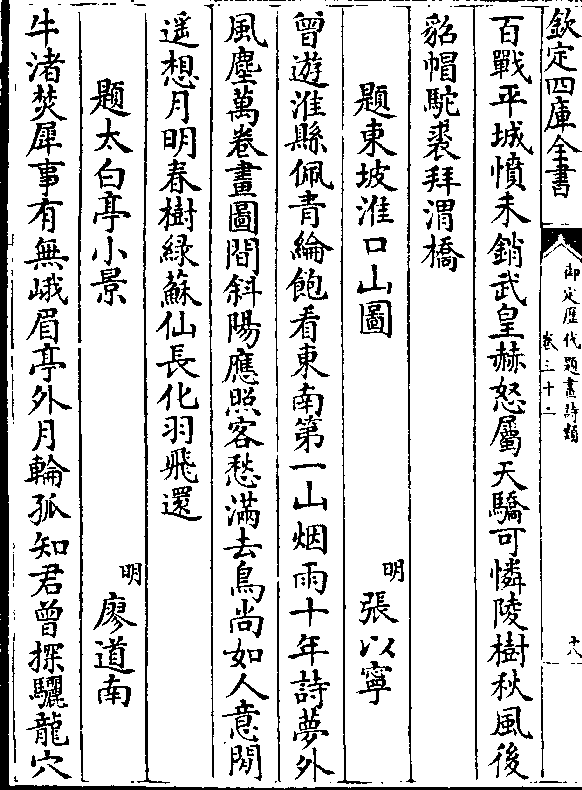 欽定四庫全書
御定歴代題畫詩類
卷三十二
十八
百戰平城憤未銷武皇赫怒屬天驕可憐陵樹秋風後
貂帽駝裘拜渭橋
題東坡淮口山圖
明
張以寧
曾遊淮縣佩青綸飽看東南第一山烟雨十年詩夢外
風塵萬卷畫圖間斜陽應照客愁滿去鳥尚如人意閒
遥想月明春樹緑蘇仙長化羽飛還
題太白亭小景
明
廖道南
牛渚焚犀事有無峨眉亭外月輪孤知君曾探驪龍穴